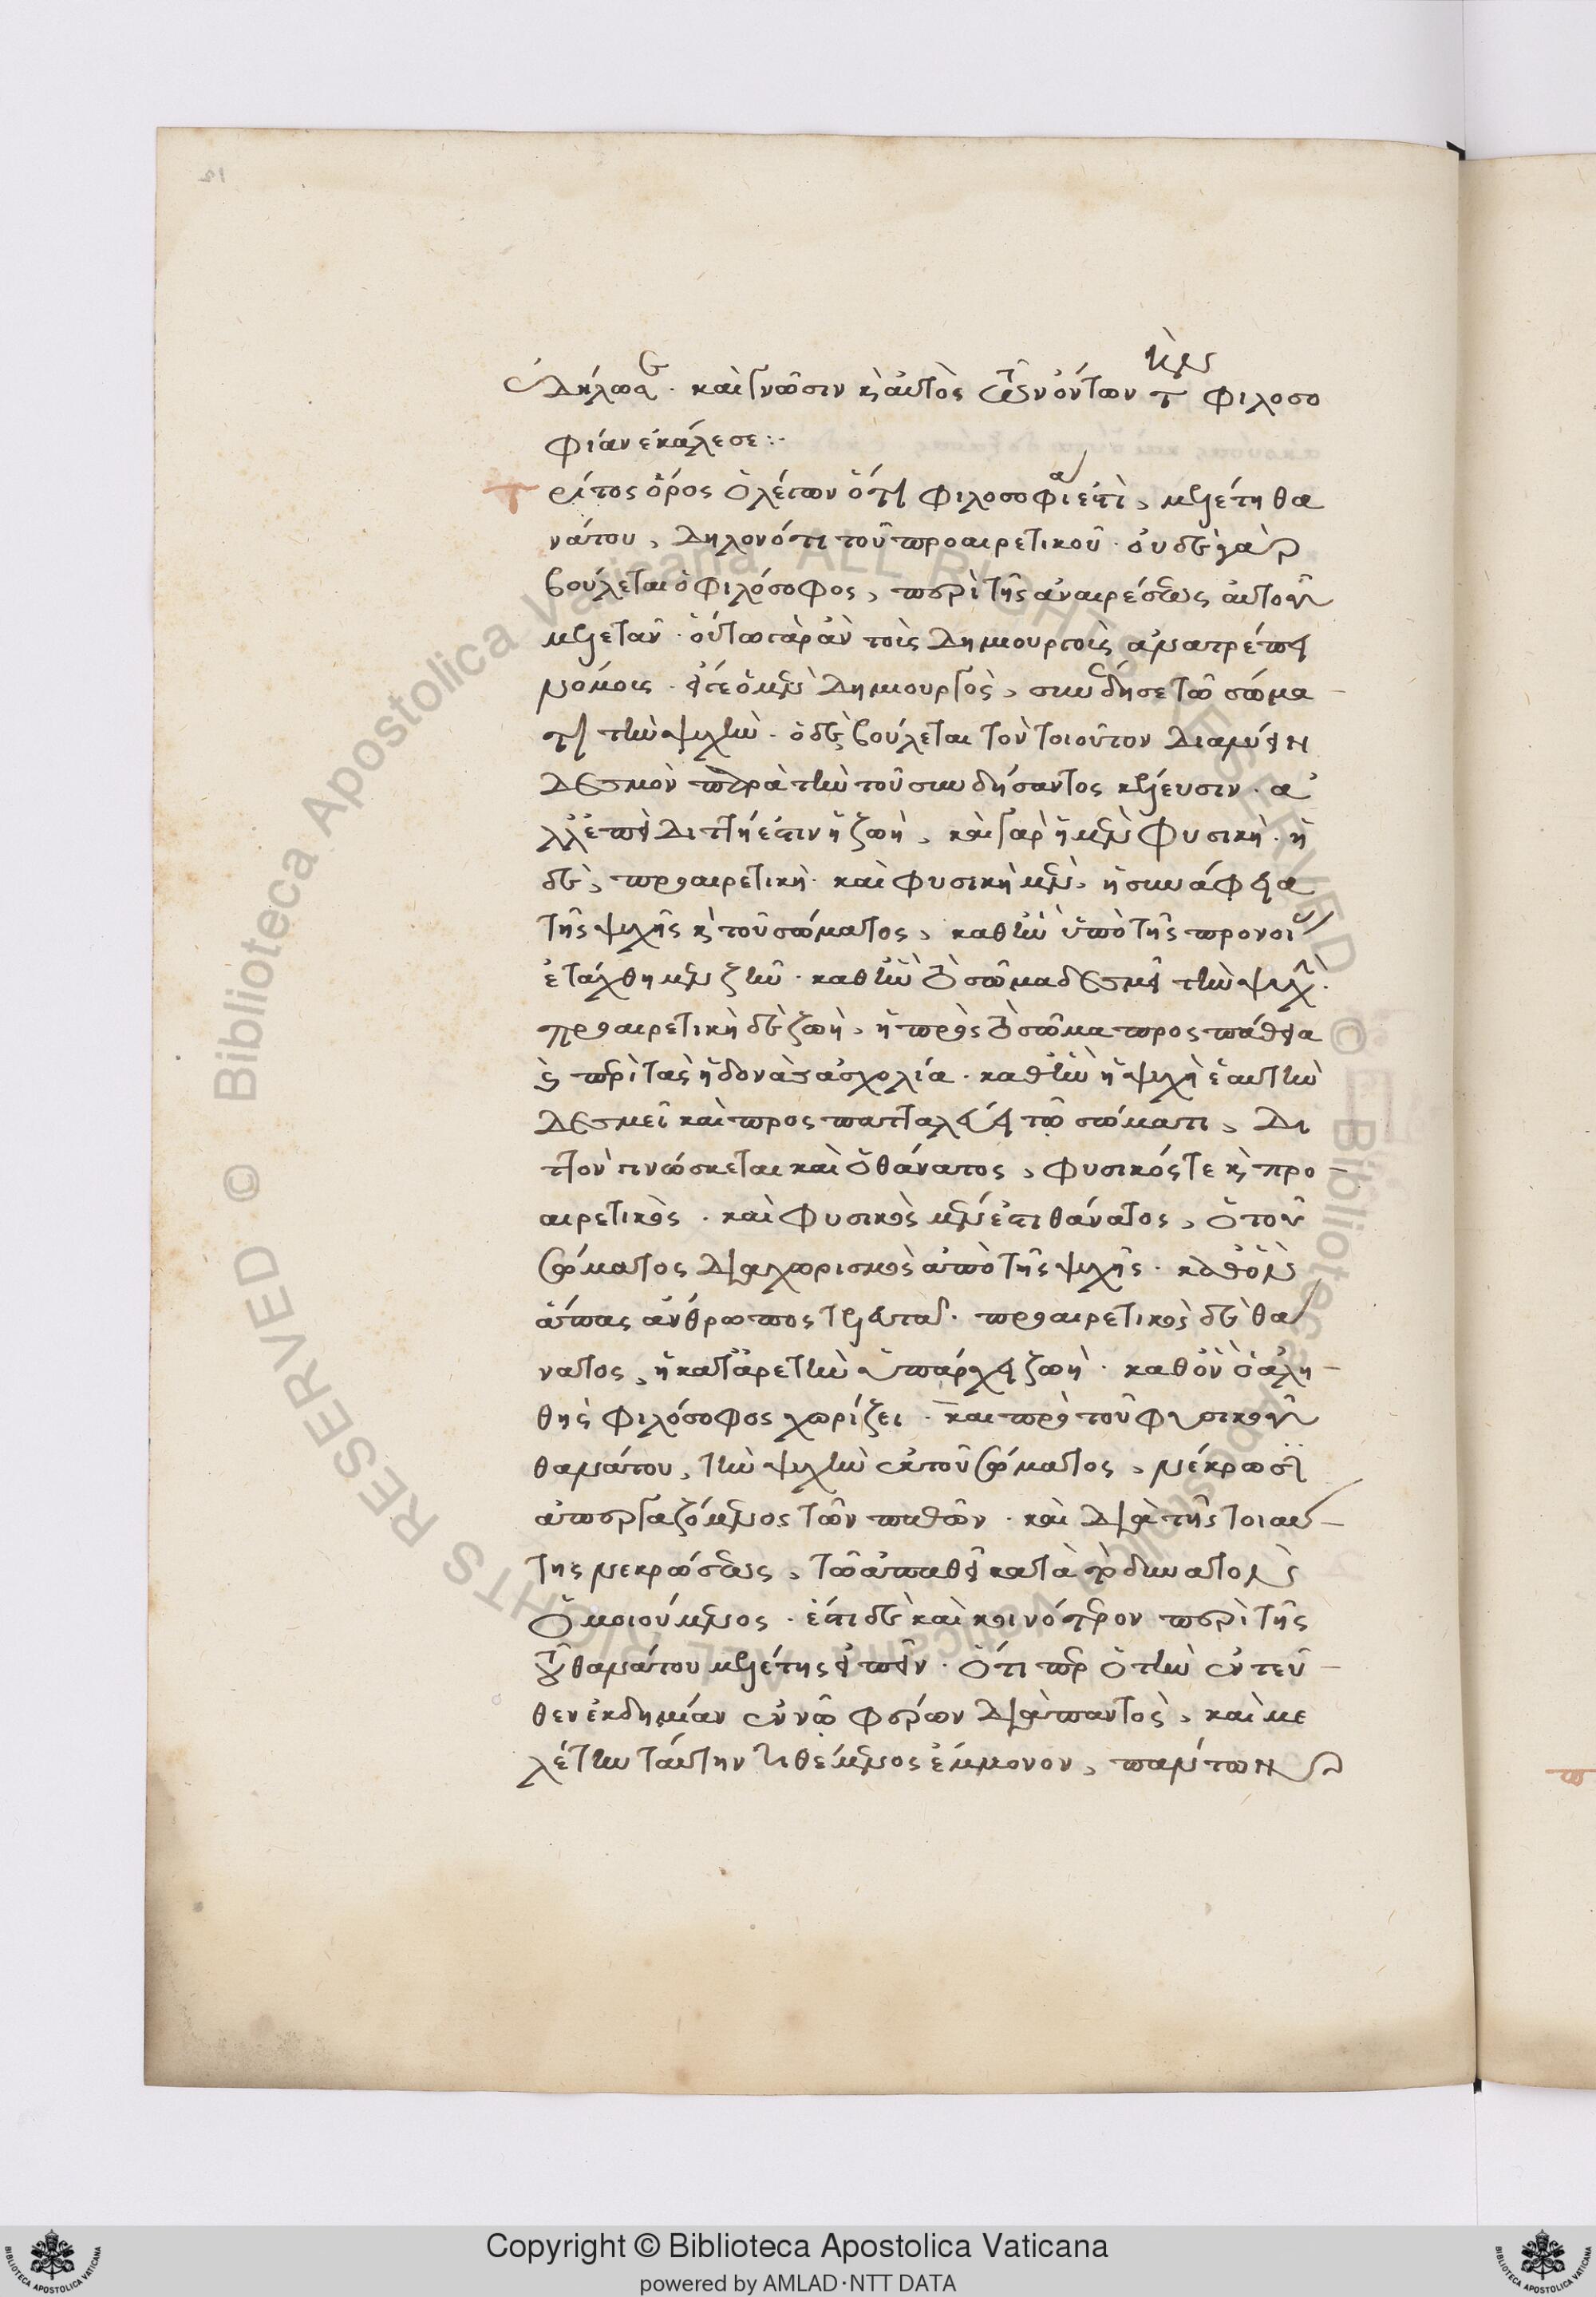 12
ἐδήλωσε. καὶ γνῶσιν καὶ αὐτὸς τῶν ὄντων τὴν φιλοσο
φίαν ἐκάλεσε:
ρίτος ὅρος ὁ λέγων ὅτι φιλοσοφία ἐστὶ, μελέτη θα
νάτου, δηλονότι τοῦ προαιρετικοῦ. οὐδὲ γὰρ
βούλεται ὁ φιλόσοφος, περὶ τῆς ἀναιρέσεως αὐτοῦ
μελετᾶν. οὕτω γὰρ ἂν τοῖς δημιουργοῖς ἀνατρέποι
νόμοις. εἴγε ὁ μὲν δημιουργὸς, συνέδησε τῶ σώμα
τι τὴν ψυχὴν. ὁ δὲ βούλεται τὸν τοιοῦτον διαλύειν
δεσμὸν παρὰ τὴν τοῦ συνδήσαντος κέλευσιν. ἀ
λλ' ἐπεὶ διττή ἐστιν ἡ ζωὴ, καὶ γὰρ ἡ μὲν φυσικὴ. ἡ
δὲ, προαιρετικὴ. καὶ φυσικὴ μὲν, ἡ συνάφεια
τῆς ψυχῆς καὶ τοῦ σώματος, καθ' ἣν ὑπὸ τῆς προνοίας
ἐτάχθημεν ζῆν. καθ' ἣν τὸ σῶμα δεσμεῖ τὴν ψυχὴν.
προαιρετικὴ δὲ ζωὴ, ἡ πρὸς τὸ σῶμα προσπάθεια
καὶ περὶ τὰς ἡδονὰς ἀσχολία. καθ' ἣν ἡ ψυχὴ ἑαυτὴν
δεσμεῖ καὶ προσπατταλεύει τῶ σώματι, δι
ττὸν γινώσκεται καὶ ὁ θάνατος, φυσικός τε καὶ προ
αιρετικὸς. καὶ φυσικὸς μέν ἐστι θάνατος, ὁ τοῦ
σώματος διαχωρισμὸς ἀπὸ τῆς ψυχῆς. καθ' ὃν
ἅπας ἄνθρωπος τελευτᾶ. προαιρετικὸς δὲ θά
νατος, ἡ κατ' ἀρετὴν ὑπάρχει ζωὴ. καθ' ὃν ὁ ἀλη
θὴς φιλόσοφος χωρίζει. καὶ πρὸ τοῦ φυσικοῦ
θανάτου, τὴν ψυχὴν ἐκ τοῦ σώματος, νέκρωσιν
ἀπεργαζόμενος τῶν παθῶν. καὶ διὰ τῆς τοιαύ
της νεκρώσεως, τῶ ἀπαθεῖ κατὰ τὸ δυνατὸν
ὁμοιούμενος. ἔστι δὲ καὶ κοινότερον περὶ τῆς
τοῦ θανάτου μελέτης εἰπεῖν. ὅτιπερ ὁ τὴν ἐντεῦ
θεν ἐκδημίαν ἐν νῶ φέρων διὰ παντὸς, καὶ με
λέτην ταύτην τιθέμενος ἔμμονον, πάντων
Copyright © Biblioteca Apostolica Vaticana
powered by AMLAD·NTT DATA